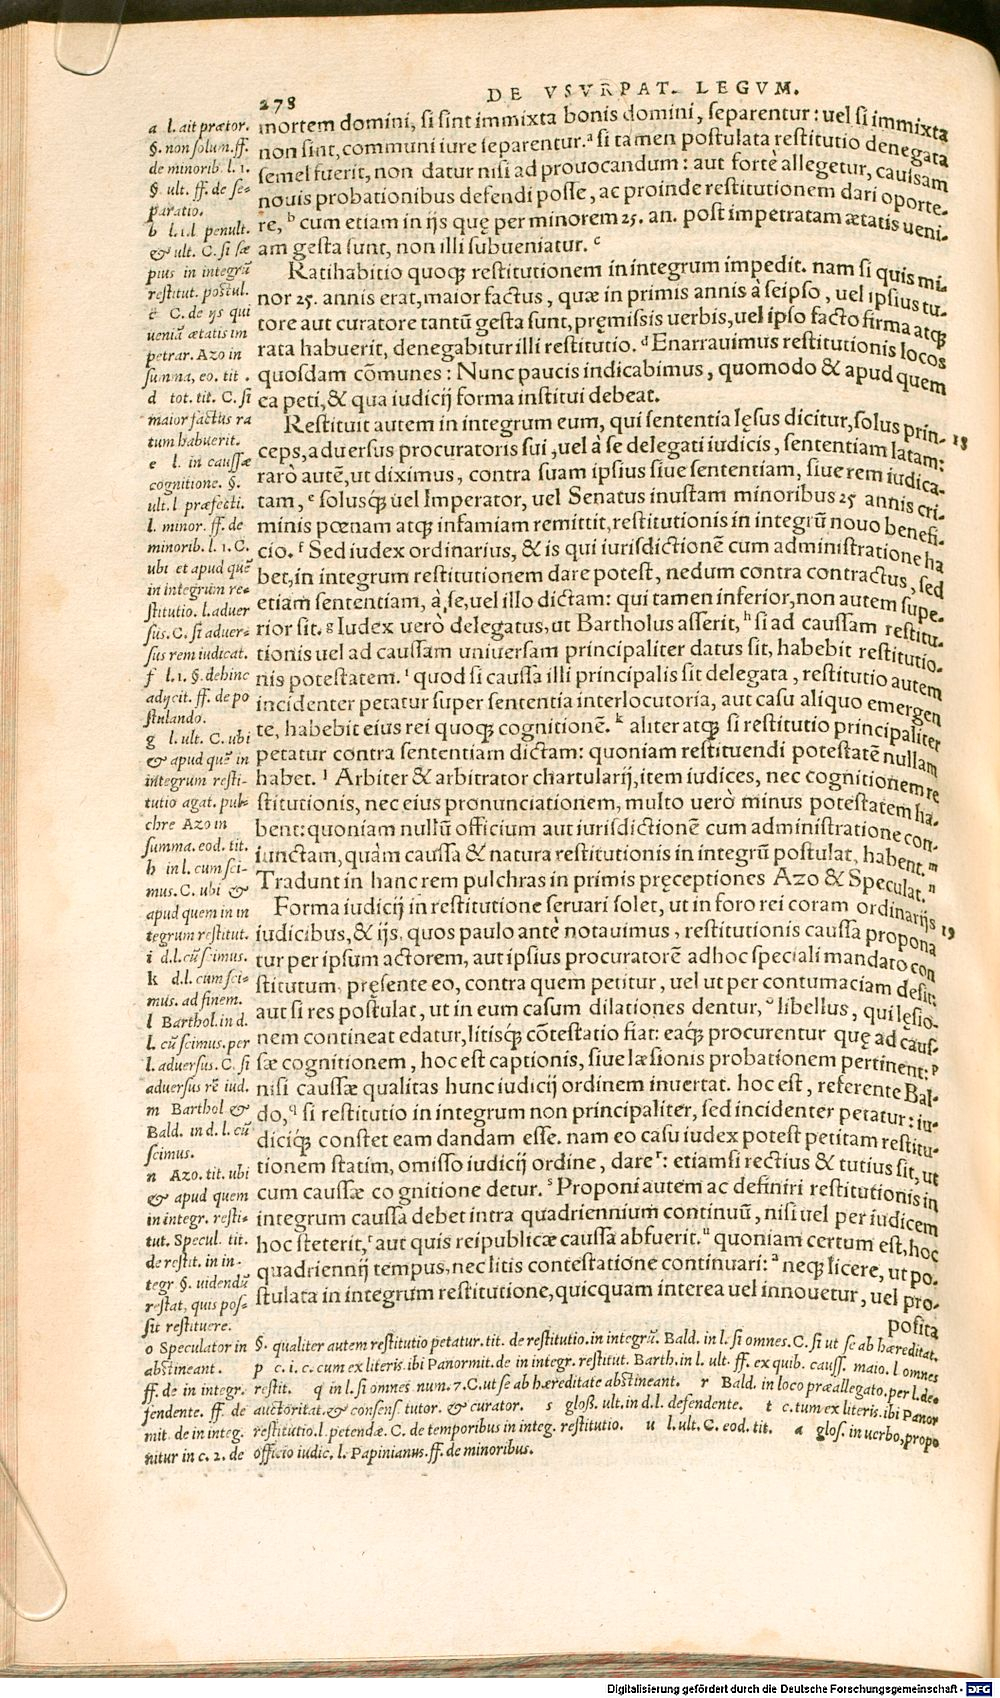 278
DE VSVRPAT. LEGVM.
mortem domini, si sint immixta bonis domini, separentur: uel si immixta
non sint, communi iure separentur.ᵃ si tamen postulata restitutio denegata
semel fuerit, non datur nisi ad prouocandum: aut fortè allegetur, caussam
nouis probationibus defendi posse, ac proinde restitutionem dari oporte-
re, ᵇ cum etiam in ijs quę per minorem 25. an. post impetratam ætatis ueni-
am gesta sunt, non illi subueniatur. ᶜ
Ratihabitio quoqꝫ restitutionem in integrum impedit. nam si quis mi-
nor 25. annis erat, maior factus, quæ in primis annis à seipso, uel ipsius tu-
tore aut curatore tantũ gesta sunt, pręmissis uerbis, uel ipso facto firma atqꝫ
rata habuerit, denegabitur illi restitutio. ᵈ Enarrauimus restitutionis locos
quosdam cõmunes: Nunc paucis indicabimus, quomodo & apud quem
ea peti, & qua iudicij forma institui debeat.
Restituit autem in integrum eum, qui sententia lęsus dicitur, solus prin- 18
ceps, aduersus procuratoris sui, uel à se delegati iudicis, sententiam latam:
rarò autẽ, ut diximus, contra suam ipsius siue sententiam, siue rem iudica-
tam, ᵉ solusqꝫ uel Imperator, uel Senatus inustam minoribus 25 annis cri-
minis pœnam atqꝫ infamiam remittit, restitutionis in integrũ nouo benefi-
cio. ᶠ Sed iudex ordinarius, & is qui iurisdictionẽ cum administratione ha
bet, in integrum restitutionem dare potest, nedum contra contractus, sed
etiam sententiam, à se, uel illo dictam: qui tamen inferior, non autem supe-
rior sit. ᵍ Iudex uerò delegatus, ut Bartholus asserit, ʰ si ad caussam restitu-
tionis uel ad caussam uniuersam principaliter datus sit, habebit restitutio-
nis potestatem. ⁱ quod si caussa illi principalis sit delegata, restitutio autem
incidenter petatur super sententia interlocutoria, aut casu aliquo emergen
te, habebit eius rei quoqꝫ cognitionẽ. ᵏ aliter atqꝫ si restitutio principaliter
petatur contra sententiam dictam: quoniam restituendi potestatẽ nullam
habet. ˡ Arbiter & arbitrator chartularij, item iudices, nec cognitionem re
stitutionis, nec eius pronunciationem, multo uerò minus potestatem ha-
bent: quoniam nullũ officium aut iurisdictionẽ cum administratione con-
iunctam, quàm caussa & natura restitutionis in integrũ postulat, habent. ᵐ
Tradunt in hanc rem pulchras in primis pręceptiones Azo & Speculat. ⁿ
Forma iudicij in restitutione seruari solet, ut in foro rei coram ordinarijs 19
iudicibus, & ijs, quos paulo antè notauimus, restitutionis caussa propona
tur per ipsum actorem, aut ipsius procuratorẽ adhoc speciali mandato con
stitutum, pręsente eo, contra quem petitur, uel ut per contumaciam desit:
aut si res postulat, ut in eum casum dilationes dentur, ᵒ libellus, qui lęsio-
nem contineat edatur, litisqꝫ cõtestatio fiat: eaqꝫ procurentur quę ad caus-
sæ cognitionem, hoc est captionis, siue læsionis probationem pertinent: ᵖ
nisi caussæ qualitas hunc iudicij ordinem inuertat. hoc est, referente Bal-
do, ᑫ si restitutio in integrum non principaliter, sed incidenter petatur: iu-
diciqꝫ constet eam dandam esse. nam eo casu iudex potest petitam restitu-
tionem statim, omisso iudicij ordine, dare ʳ: etiamsi rectius & tutius sit, ut
cum caussæ cognitione detur. ˢ Proponi autem ac definiri restitutionis in
integrum caussa debet intra quadriennium continuũ, nisi uel per iudicem
hoc steterit, ᵗ aut quis reipublicæ caussa absuerit. ᵘ quoniam certum est, hoc
quadriennij tempus, nec litis contestatione continuari: ᵃ neqꝫ licere, ut po-
stulata in integrum restitutione, quicquam interea uel innouetur, uel pro-
posita
a l. ait prætor.
§. non solum. ff.
de minorib. l. 1.
§. ult. ff. de se-
paratio.
b l. 1. l penult.
& ult. C. si sæ
pius in integrũ
restitut. postul.
c C. de ijs qui
ueniã ætatis im
petrar. Azo in
summa, eo. tit.
d tot. tit. C. si
maior factus ra
tum habuerit.
e l. in caussæ
cognitione. §.
ult. l præfecti.
l. minor. ff. de
minorib. l. 1. C.
ubi et apud quẽ
in integrum re-
stitutio. l. aduer
sus. C. si aduer-
sus rem iudicat.
f l. 1. §. dehinc
adijcit. ff. de po
stulando.
g l. ult. C. ubi
& apud quẽ in
integrum resti-
tutio agat. pul-
chre Azo in
summa. eod. tit.
h in l. cum sci-
mus. C. ubi &
apud quem in in
tegrum restitut.
i d. l. cũ scimus.
k d. l. cum sci-
mus. ad finem.
l Barthol. in d.
l. cũ scimus. per
l. aduersus. C. si
aduersus rẽ iud.
m Barthol &
Bald. in d. l. cũ
scimus.
n Azo. tit. ubi
& apud quem
in integr. resti-
tut. Specul. tit.
de restit. in in-
tegr §. uidendũ
restat, quis pos-
sit restituere.
o Speculator in §. qualiter autem restitutio petatur. tit. de restitutio. in integrũ. Bald. in l. si omnes. C. si ut se ab hæreditat.
abstineant. p c. i. c. cum ex literis. ibi Panormit. de in integr. restitut. Barth. in l. ult. ff. ex quib. causs. maio. l omnes
ff. de in integr. restit. q in l. si omnes num. 7. C. ut se ab hæreditate abstineant. r Bald. in loco præallegato. per l. de-
fendente. ff. de auctoritat. & consens tutor. & curator. s gloss. ult. in d. l. defendente. t c. tum ex literis. ibi Panor
mit. de in integ. restitutio. l. petendæ. C. de temporibus in integ. restitutio. u l. ult. C. eod. tit. a glos. in uerbo, propo
nitur in c. 2. de officio iudic. l. Papinianus. ff. de minoribus.
Digitalisierung gefördert durch die Deutsche Forschungsgemeinschaft - DFG